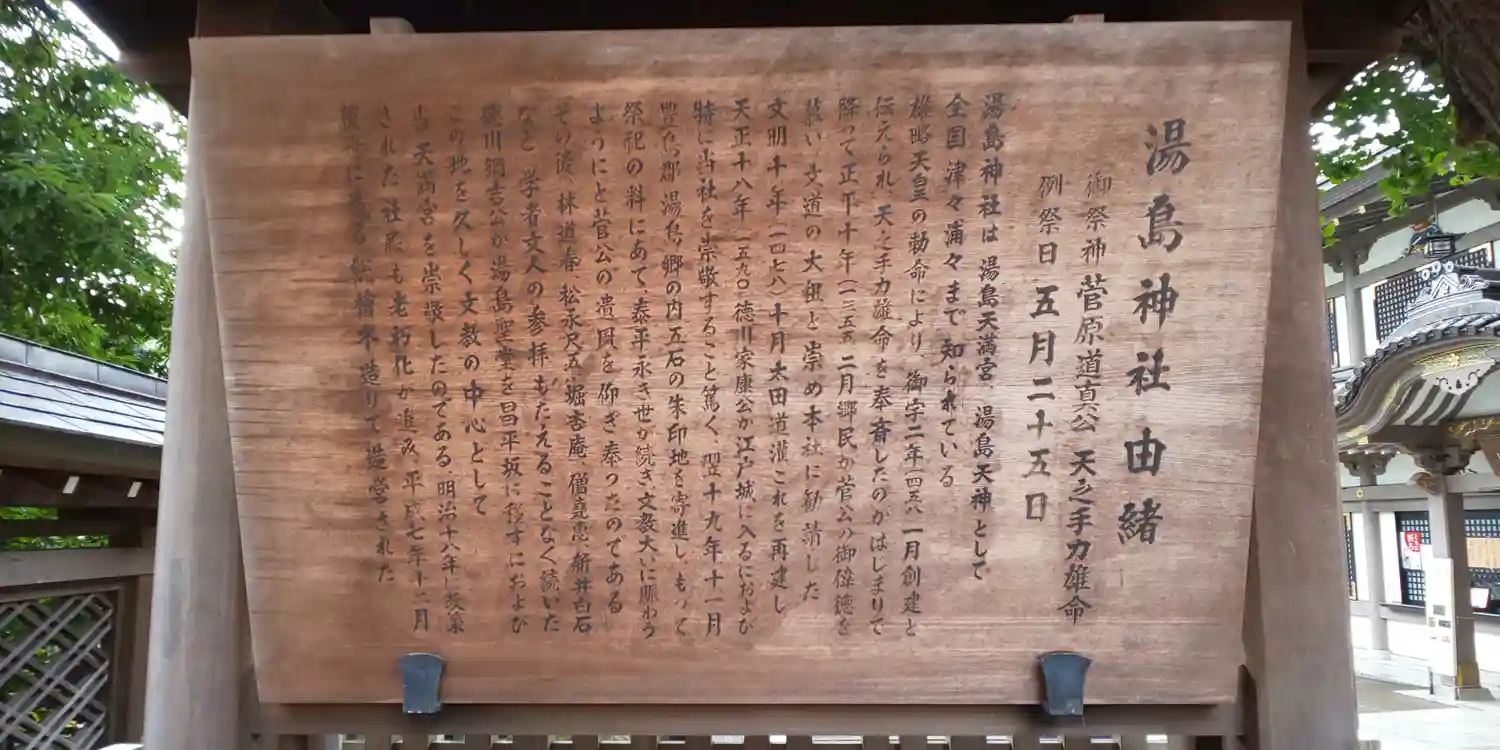 湯島神社由緒
御祭神 菅原道真公 天之手力雄命
例祭日 五月二十五日
湯島神社は 湯島天満宮 湯島天神として
全国津々浦々まで知られている
雄略天皇の勅命により、御宇二年(四五八)一月創建と
伝えられ、天之手力雄命を奉斎したのがはじまりで
降って正平十年(一三五五)二月郷民が菅公の御偉徳を
慕い、文道の大祖と崇め本社に勧請した
文明十年(一四七八)十月太田道灌これを再建し
天正十八年(一五九〇)徳川家康公が江戸城に入るにおよび
特に当社を崇敬すること篤く、翌十九年十一月
豊島郡湯島郷の内五石の朱印地を寄進し、もって
祭祀の料にあて、泰平永き世が続き、文教大いに賑わう
ようにと菅公の遺風を仰ぎ奉ったのである
その後、林道春、松永尺五、堀杏庵、僧堯恵、新井白石
など 学者文人の参拝もたえることなく続いた
徳川綱吉公が湯島聖堂を昌平坂に移すにおよび
この地を久しく文教の中心として
当天満宮を崇敬したのである、明治十八年に改築
された社殿も老朽化が進み、平成七年十二月
総檜木造りで造営された